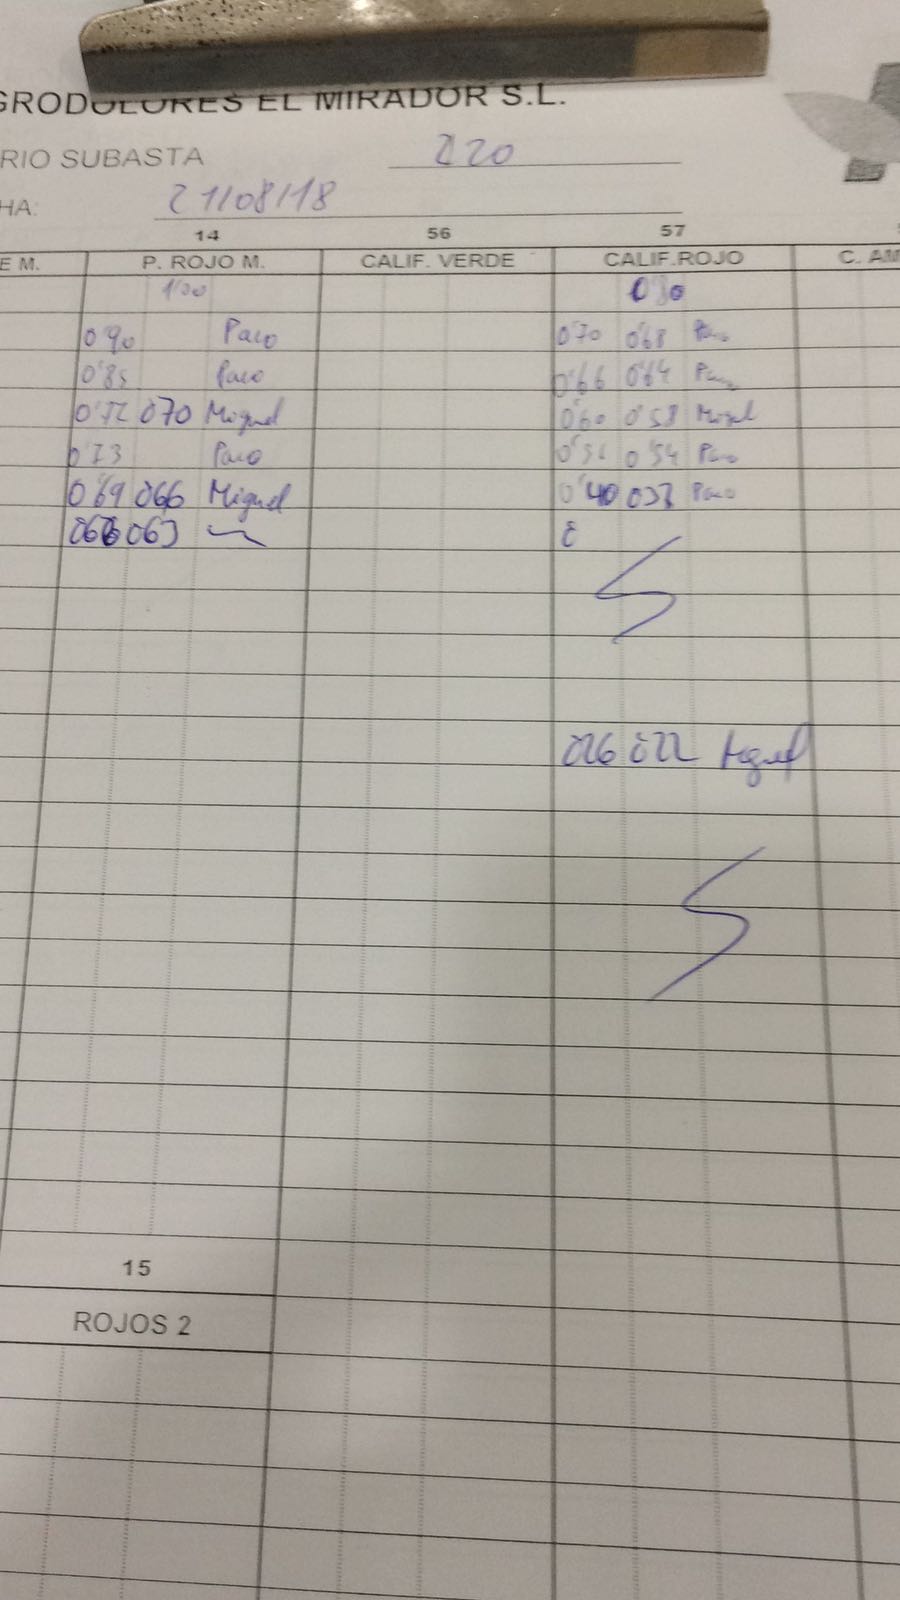 GRODOLORES EL MIRADOR S.L.
RIO SUBASTA 220
HA: 21/08/18
14 56 57
E M. P. ROJO M. CALIF. VERDE CALIF.ROJO C. AM
1'00 0'80
0'90 Paco 0'70 0'68 Paco
0'85 Paco 0'66 0'64 Paco
0'72 070 Miguel 0'60 0'58 Miguel
0'73 Paco 0'56 0'54 Paco
0'69 066 Miguel 0'40 037 Paco
066 063
026 022 Miguel
15
ROJOS 2